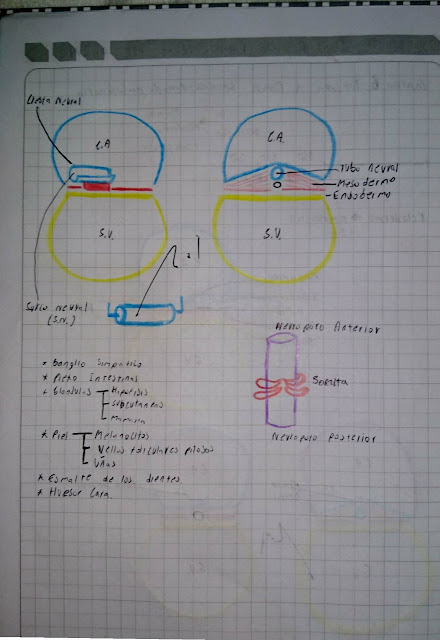 Cresta Neural
C.A
C.A.
Tubo Neural
Mesodermo
Endodermo
S.V.
S.V.
Surco Neural
(S.N.)
Neuroporo Anterior
Somita
Neuroporo Posterior
* Ganglio Simpatico
* Plexo Intestinal
* Glandulas
Hipofisis
Subcutaneas
Mamaria
* Piel
Melanocitos
Vellos foliculares pilosos
Uñas
* Esmalte de los dientes
* Huesos Cara.